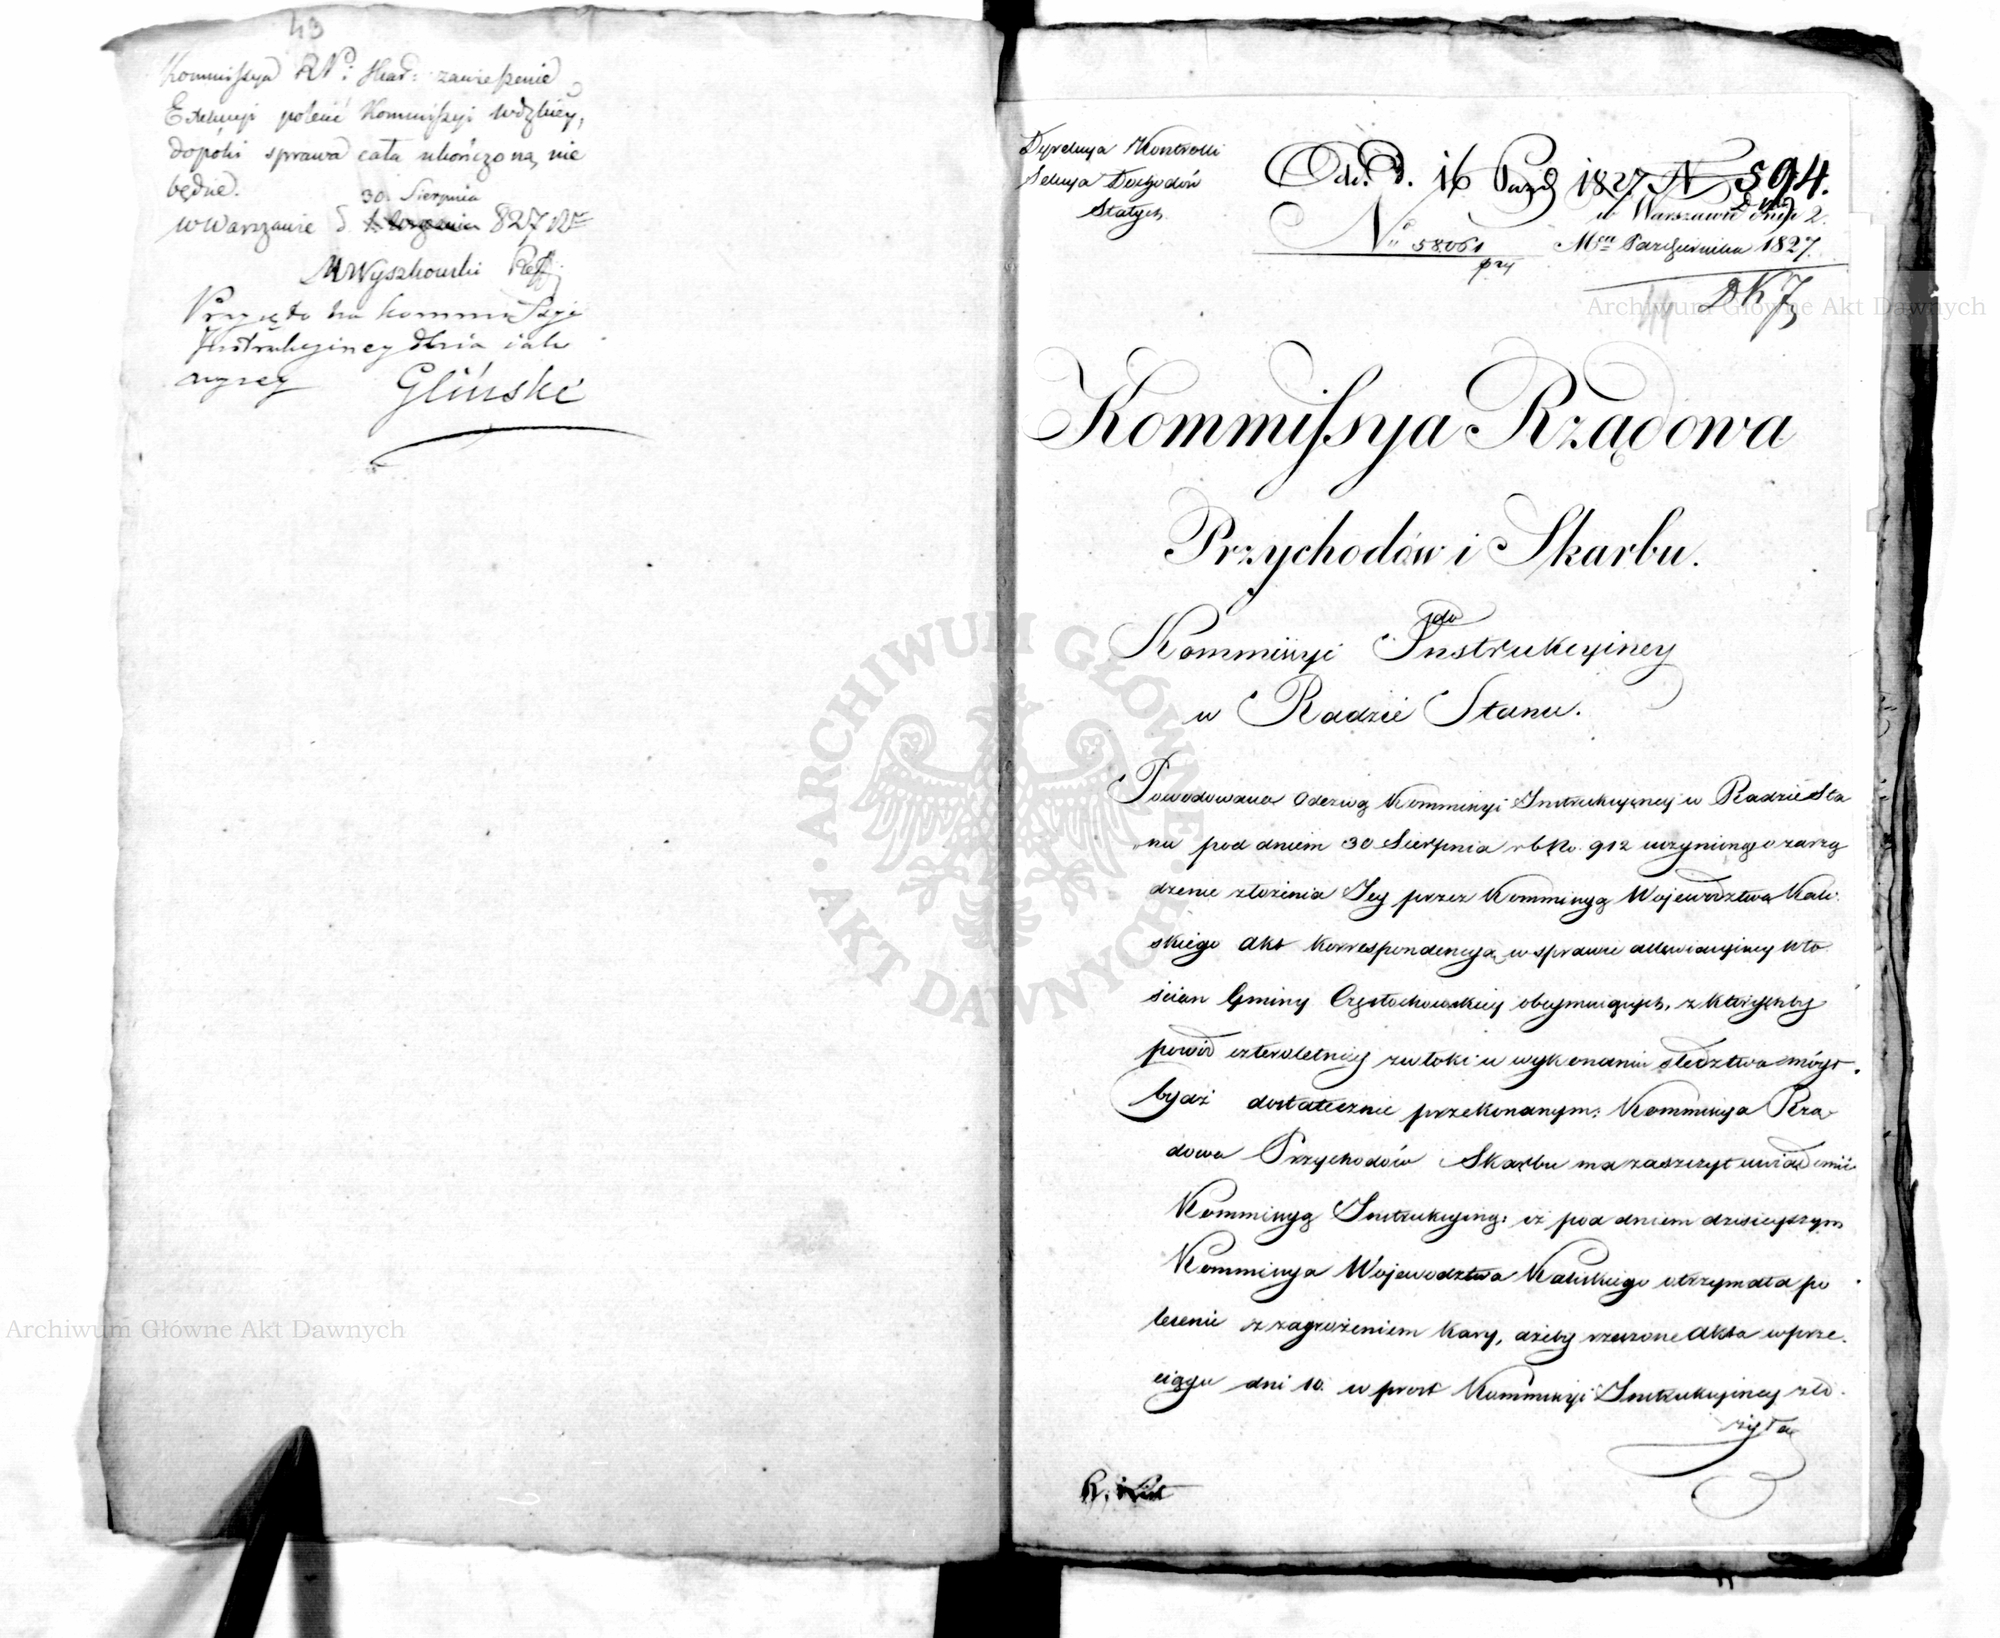 43
Kommissya R. P. i Skar: zawieszenie
Exekucyi polecić Kommissyi Wdzkiey,
dopóki sprawa cała ukończoną nie
będzie.
30. Sierpnia
w Warszawie d. 827 R
MWyszkowski Ref.
Przyięto na Kommissyi
Instrukcyiney dnia iak
wyżey
Glinski
Dyrekcya Kontrolli
Sekcya Dochodów
Stałych
Ode. d. 16 Paźd 1827 N 594.
w Warszawie dnia 2.
No 58061
Mca Października 1827.
Kommissya Rządowa
Przychodów i Skarbu.
do
Kommissyi Instrukcyiney
w Radzie Stanu.
Powodowana Odezwą Kommissyi Instrukcyiney w Radzie Sta
nu pod dniem 30 Sierpnia r b No. 912 uczynioną o zarzą
dzenie złożenia Jey przez Kommissyą Województwa Kali.
skiego Akt korrespondencyą w sprawie allewiacyiney Wło.
ścian Gminy Częstochowskiey obeymuiących, z którychby
powód czteroletniey zwłoki w wykonaniu śledztwa mógł
bydź dostatecznie przekonanym: Kommissya Rzą
dowa Przychodów Skarbu ma zaszczyt uwiadomić
Kommissyą Instrukcyiną: iż pod dniem dzisieyszym
Kommissya Województwa Kaliskiego otrzymała po
lecenie z zagrożeniem kary, ażeby rzeczone Akta w prze.
ciągu dni 10. w prost Kommissyi Instrukcyiney zło.
żyła
Archiwum Główne Akt Dawnych
Archiwum Główne Akt Dawnych
ARCHIWUM GŁÓWNE AKT DAWNYCH